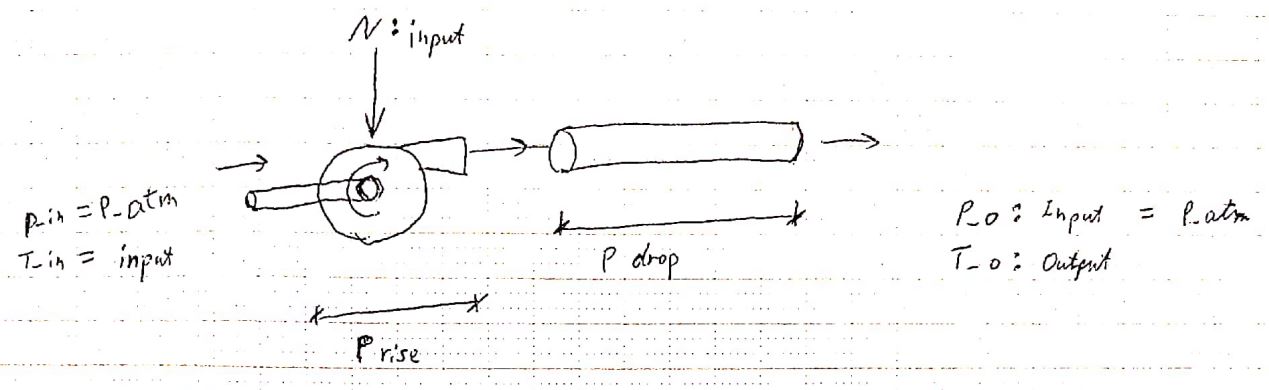 N : input
p_in = P_atm
T_in = input
P drop
P_o : Input = P_atm
T_o : Output
P rise